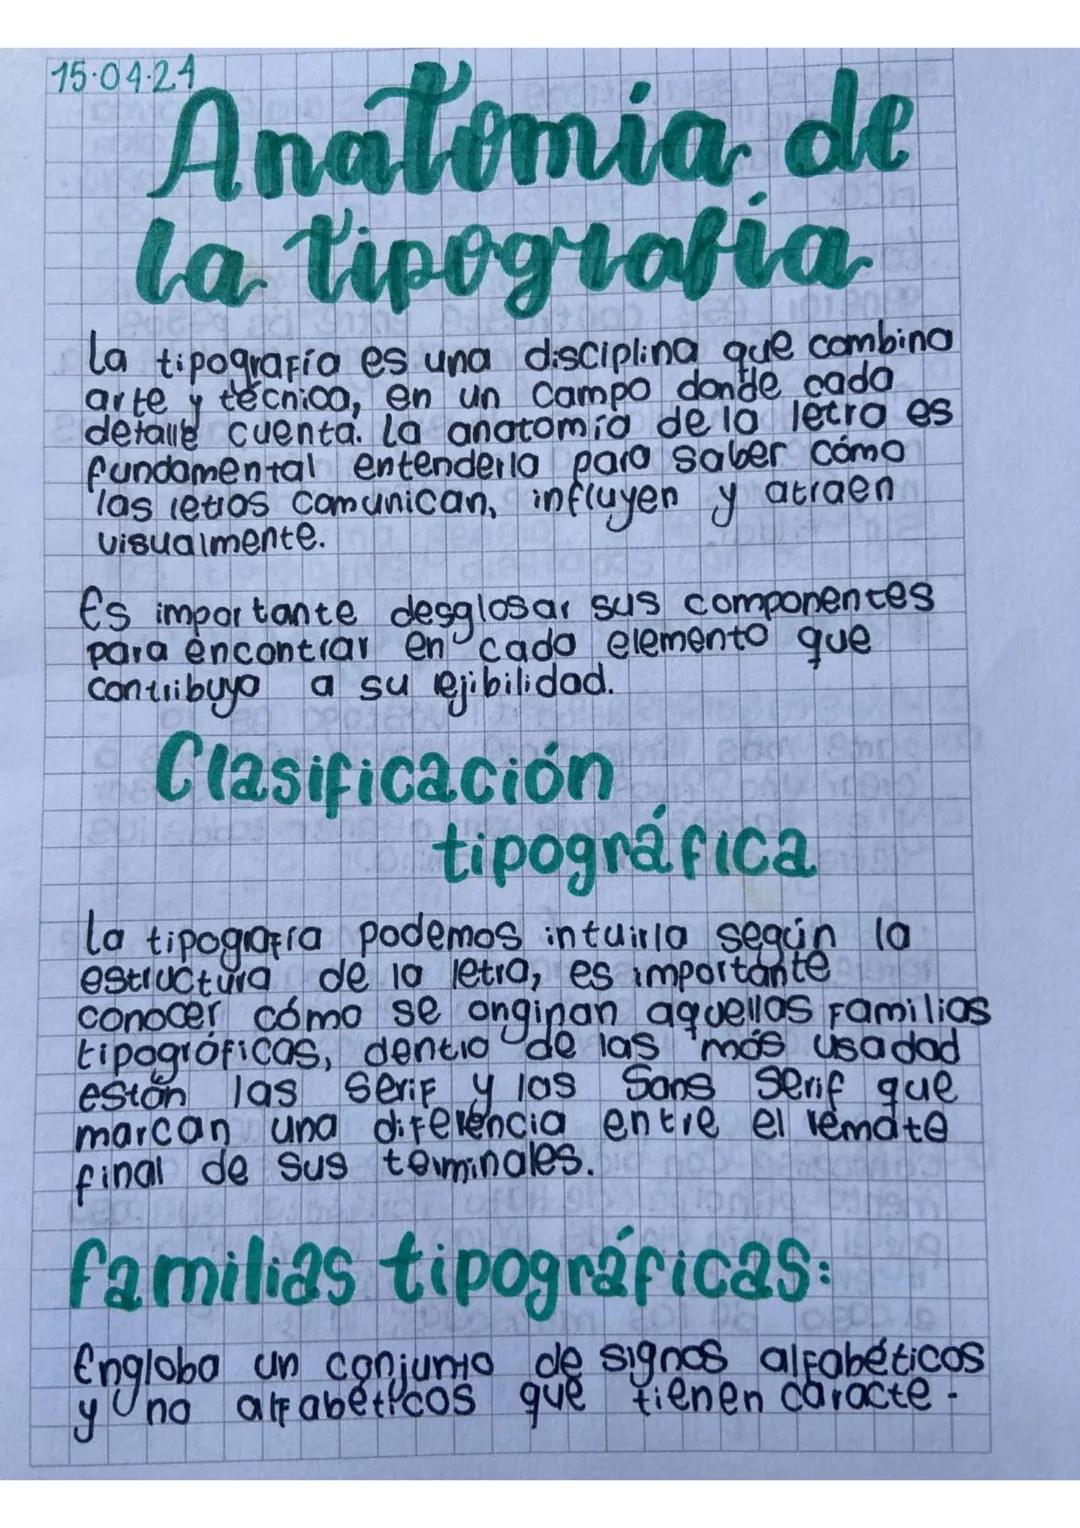 15.04.24
Anatomía de
la tipografía
La tipografía es una disciplina que combina
arte y técnica, en un campo donde cada
detalle cuenta. La anatomía de la letra es
fundamental entenderla para saber cómo
las letras comunican, influyen y atraen
visualmente.
Es importante desglosar sus componentes
para encontrar en cada elemento que
contribuya a su lejibilidad.
Clasificación
tipográfica
La tipografía podemos intuirla según la
estructura de la letra, es importante
conocer cómo se originan aquellas familias
tipográficas, dentro de las más usadad
están las serif y las Sans Serif que
marcan una diferencia entre el remate
final de sus terminales.
familias tipográficas:
Engloba un conjunto de signos alfabéticos
y no alfabéticos que tienen caracte-